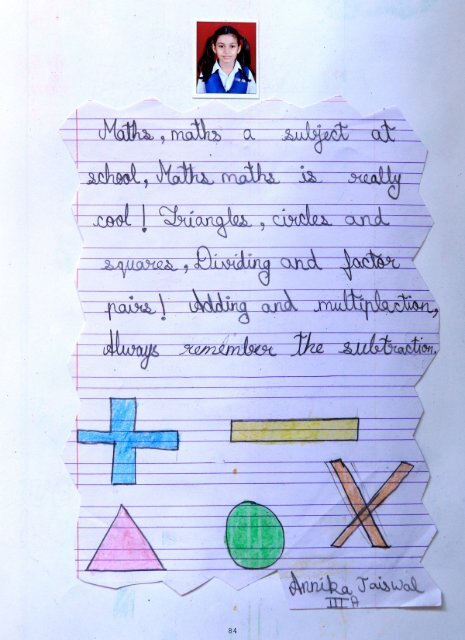 Maths, maths a subject at
school, Maths maths is really
cool! Triangles, circles and
squares, Dividing and factor
pairs! Adding and multiplection,
Always remember the subtraction.
Annika Jaiswal
III A
84